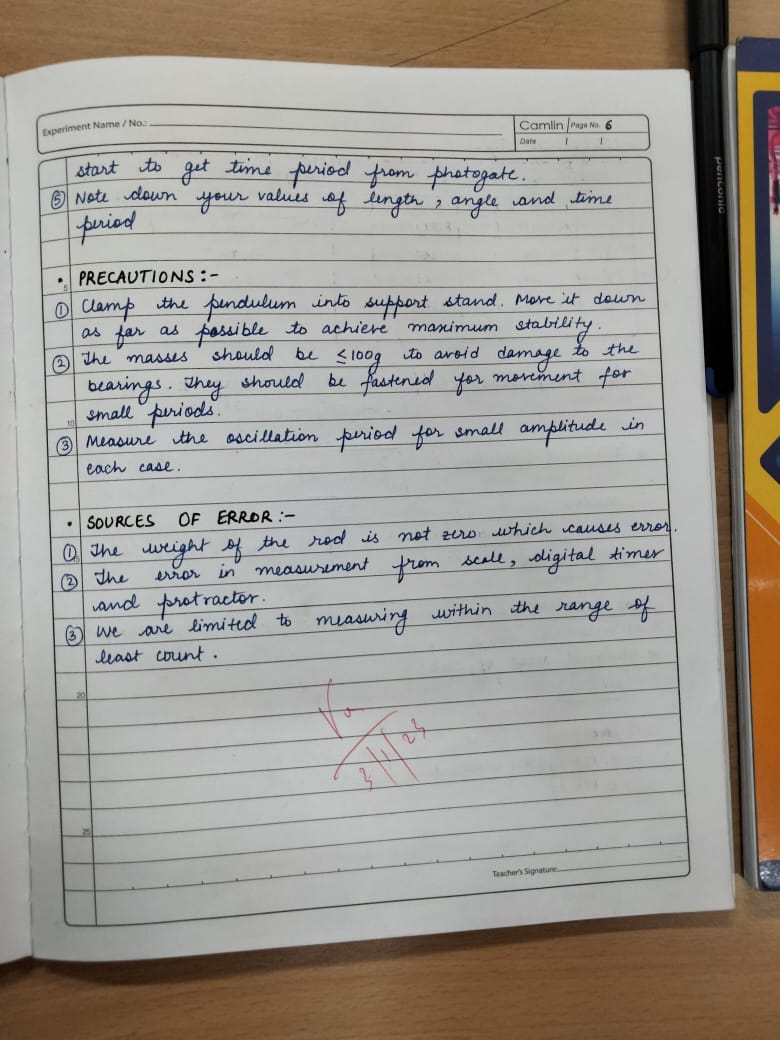 Experiment Name / No.:
Camlin Page No. 6
Date / /
start to get time period from photogate.
⑤ Note down your values of length, angle and time
period
• PRECAUTIONS :-
5
① Clamp the pendulum into support stand. Move it down
as far as possible to achieve maximum stability.
② The masses should be ≤100g to avoid damage to the
bearings. They should be fastened for movement for
10
small periods.
③ Measure the oscillation period for small amplitude in
each case.
• SOURCES OF ERROR :-
① The weight of the rod is not zero which causes error.
15
② The error in measurement from scale, digital timer
and protractor.
③ We are limited to measuring within the range of
least count.
20
3/1/23
25
Teacher's Signature: